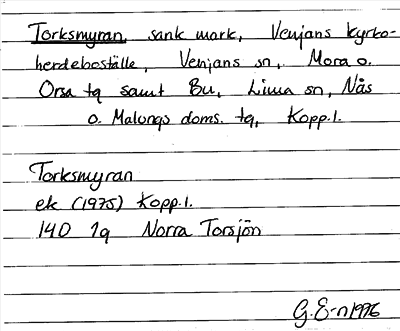 Torksmyran, sank mark, Venjans kyrko-
herdeboställe, Venjans sn, Mora o.
Orsa tg samt Bu, Lima sn, Nås
o. Malungs doms. tg, Kopp.l.
Torksmyran
ek (1975) Kopp.l.
14D 1g Norra Torsjön
G.E-n 1976